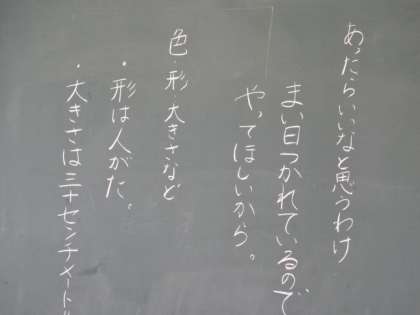 あったらいいなと思うわけ
まい日つかれているので
やってほしいから。
色・形 大きさなど
・形は人がた。
・大きさは三十センチメートル